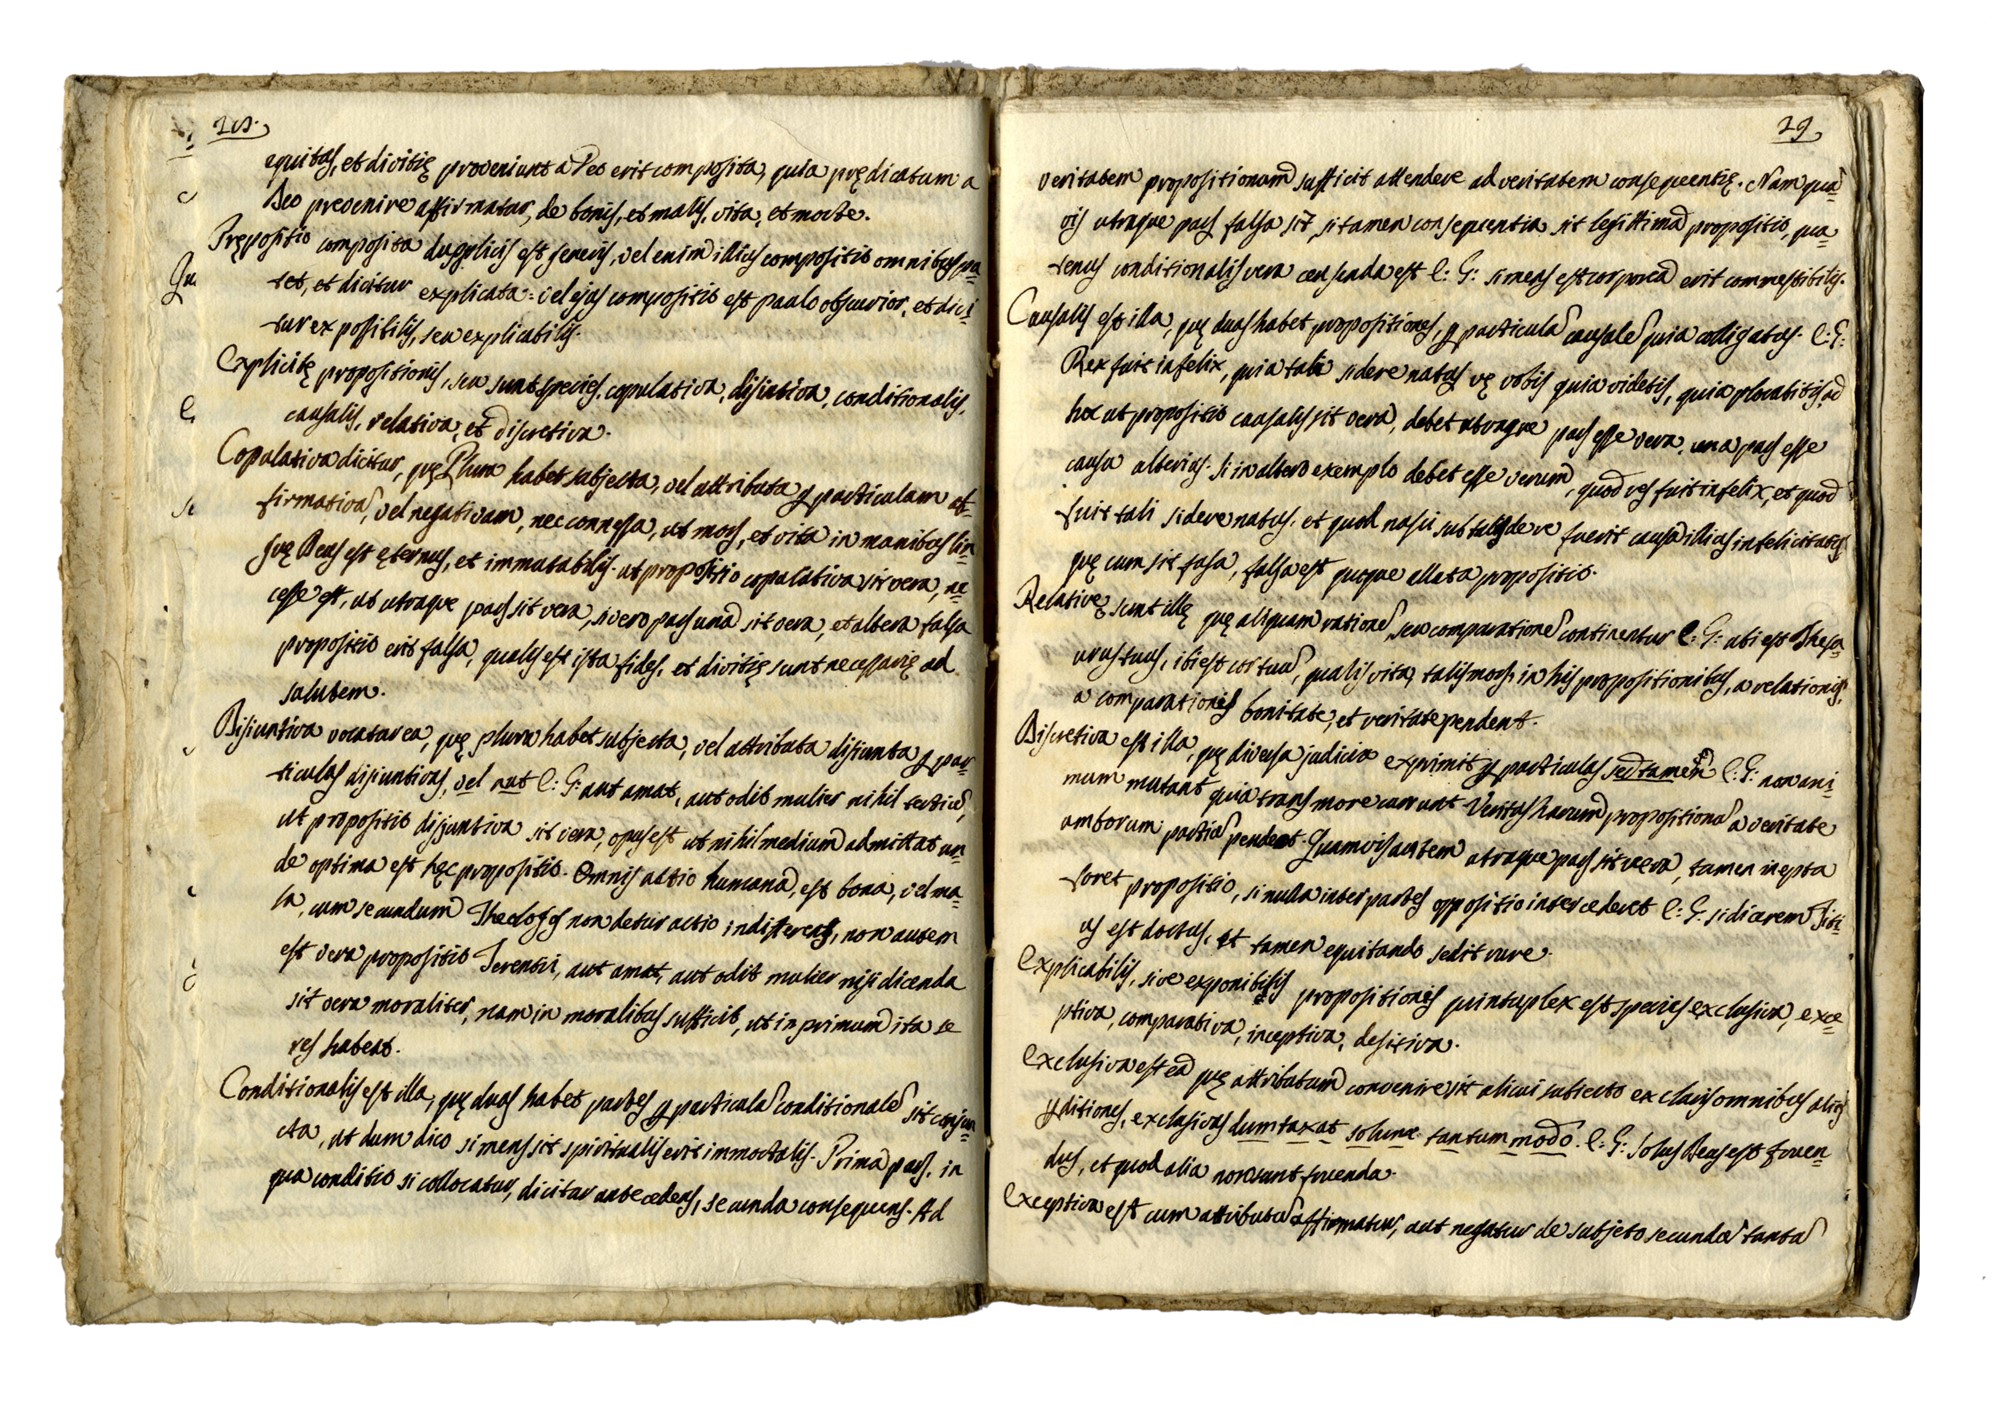 28.
equitas, et divitię proveniunt a Deo erit composita, quia prędicatum a
Deo provenire affirmatur, de bonis, et malis, vita, et morte.
Prępositio composita dupplicis est generis, vel enim illius compositio omnibus pa=
tet, et dicitur explicata: vel ejus compositio est paulo obscurior, et dici=
tur expossibilis, seu explicabilis.
Explicitę propositionis, sex sunt species, copulativa, disiuntiva, conditionalis,
causalis, relativa, et discretiva.
Copulativa dicitur, quę Plura habet subjecta, vel attributa p particulam af=
firmativā, vel negativam, nec connessa, ut mors, et vita in manibus lin=
guę Deus est ęternus, et immutabilis. ut propositio copulativa sit vera, ne=
cesse est, ut utraque pars sit vera, si vero pars una sit vera, et altera falsa
propositio erit falsa, qualis est ista fides, et divitię sunt necessarię ad
salutem.
Disiuntiva vocatur ea, quę plura habet subjecta, vel attributa disiunta p par=
ticulas disiuntivas, vel aut E: G: aut amat, aut odit mulier nihil tertiū,
ut propositio disjuntiva sit vera, opus est ut nihil medium admittat un=
de optima est hęc propositio. Omnis actio humana, est bona, vel ma=
la, cum secundum Theologos non detur actio indifferens, non autem
est vera propositio Terentii, aut amat, aut odit mulier nisi dicenda
sit vera moraliter, nam in moralibus sufficit, ut in primum ita se
res habeat.
Conditionalis est illa, quę duas habet partes p particulā conditionalē sit conjun=
cta, ut dum dico si mens sit spiritualis erit immortalis. Prima pars, in
qua conditio si collocatur, dicitur antecedens, secunda consequens. Ad
29
veritatem propositionum sufficit attendere ad veritatem consequentię. Nam quā=
vis utraque pars falsa sit, si tamen consequentia sit legittima propositio, qua=
tenus conditionalis vera censenda est E: G: si mens est corporea erit commestibilis.
Causalis est illa, quę duas habet propositiones, p particulā causalē quia colligatas. E: G:
Rex fuit infelix, quia tali sidere natus vę vobis quia videtis, quia plorabitis, ad
hoc ut propositio causalis sit vera, debet utraque pars esse vera, una pars esse
causa alterius. Si in altero exemplo debet esse verum, quod res fuit infelix, et quod
fuit tali sidere natus, et quod nasci sub tali sidere fuerit causa illius infelicitatis
quę cum sit falsa, falsa est quoque allata propositio.
Relativę sunt illę quę aliquam rationē, seu comparationē continentur E: G: ubi est Thesa=
urus tuus, ibi est cor tuū, qualis vita, talis mors, in his propositionibus, a relationis,
a comparationis bonitate, et veritate pendent.
Discretiva est illa, quę diversa judicia exprimit p particulas sed tamen E: G: non ani=
mum mutant quia trans more currunt Veritas harum propositionū a veritate
amborum partiū pendent. Quamvis autem utraque pars sit vera, tamen inepta
foret propositio, si nulla inter partes oppositio intercederet E: G: si dicerem Titi=
us est doctus, et tamen equitando sedit rure.
Explicabilis, sive exponibilis propositionis quintuplex est species exclusiva, exce=
ptiva, comparativa, inceptiva, desitiva.
Exclusiva est ea quę attributum convenire sit alicui subiecto exclusis omnibus aliis
p ditiones, exclusivas dumtaxat solum tantummodo. E: G: Solus Deus est fruen=
dus, et quod alia non sunt fruenda.
Exceptiva est cum attributū affirmatur, aut negatur de subjeto secundū tantū